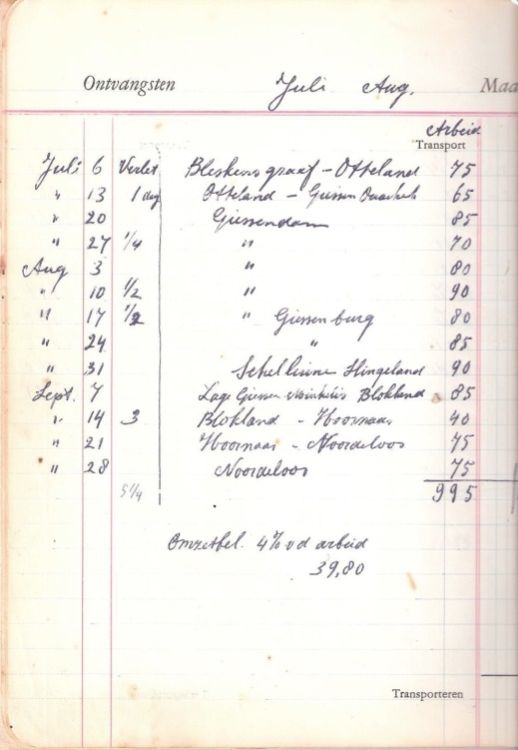 Ontvangsten Juli Aug. Maa
Arbeid
Transport
Juli 6 Verlet Bleskensgraaf - Otteland 75
" 13 1 dag Otteland - Giessen Ouderkerk 65
" 20 Giessendam 85
" 27 1/4 " 70
Aug 3 " 80
" 10 1/2 " 90
" 17 1/2 " Giessenburg 80
" 24 " 85
" 31 Schelluine Slingeland 90
Sept. 7 Lage Giessen Blokland 85
" 14 3 Blokland - Hoornaar 40
" 21 Hoornaar - Noordeloos 75
" 28 Noordeloos 75
5 1/4 995
Omzetbel. 4% v d arbeid
39,80
Transporteren